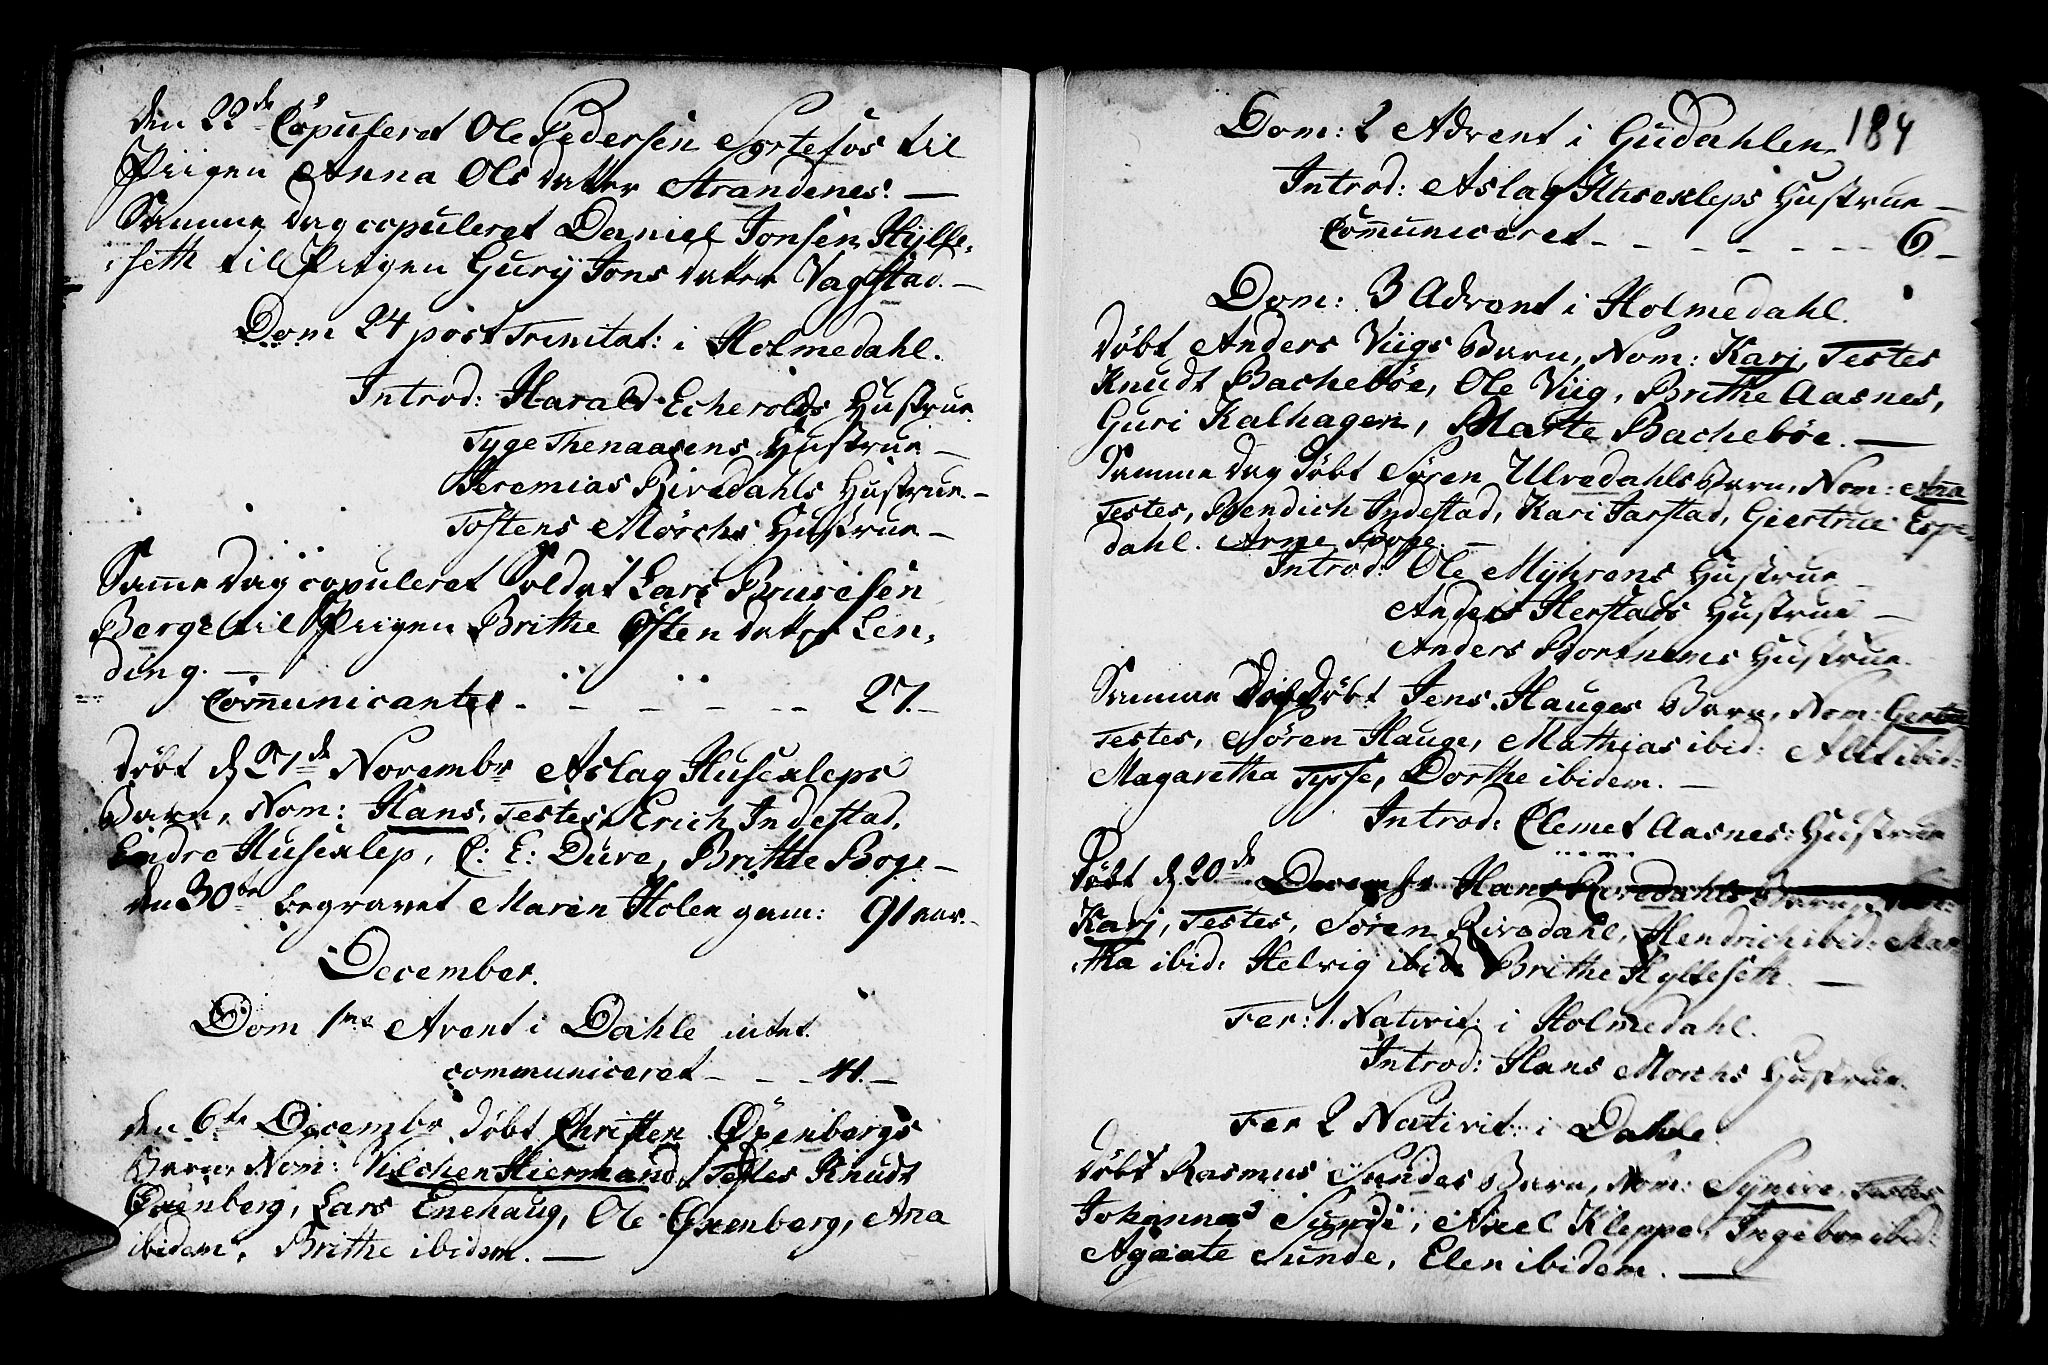 den 22de Copuleret Ole Pedersen Sortefos til
Piigen Anna Olsdatter Strandenes. —
Samme Dag copuleret Daniel Jonsen Hylle-
seth til Piigen Gurij Jonsdatter Vagstad. —
Dom 24 post Trinitat: i Holmedahl.
Introd: Harald Echerolds Hustrue
Tyge Thenaasens Hustrue —
Jeremias Rivedahls Hustrue —
Toftens Mörchs Hustrue —
Samme Dag copuleret Soldat Lars
Berge til Piigen Brithe Östendatter Len-
ding. —
Communicantes - - - - - 27. —
Döbt d 27de Novembr Aslag Husekleps
Barn, Nom: Hans, Testes, Erich Indestad,
Endre Huseklep, C: E: Düve, Brithe Boge —
den 30te begravet Maren Holen gam: 91 aar. —
December.
Dom 1me Avent i Dahle intet
communiceret - - - 11. —
den 6te Decembr döbt Christen Oxenbergs
Barn, Nom: Vilchen Hiermand, Testes Knudt
Oxenberg, Lars Enehaug, Ole Oxenberg, Ana
ibidem, Brithe ibidem. —
184
Dom: 2 Advent i Gudahlen
Introd: Aslag Husekleps Hustrue —
Communiceret - - - - - - 6 —
Dom: 3 Advent i Holmedahl.
Döbt Anders Viigs Barn, Nom: Karj, Testes
Knudt Bacheböe, Ole Viig, Brithe Aasnes,
Guri Kalhagen, Marte Bacheböe. —
Samme Dag döbt Sören Ulvedahls Barn, Nom: Ana
Testes, Bendich Indestad, Kari Jarstad, Giertrue Espe-
dahl. Arne —
Introd: Ole Mÿhrens Hustrue —
Anders Herstads Hustrue —
Anders Bortnems Hustrue
Samme Dag döbt Jens Hauges Barn, Nom:
Testes, Sören Hauge, Mathias ibid: ibid:
Magaretha Tysse, Dorthe ibidem. —
Introd: Clemet Aasnes: Hustrue
Döbt d 20de Decembr Hans Rivedahls Barn, Nom:
Karj, Testes, Sören Rivedahl, Hendrich ibid: Mar-
tha ibid: Helvig ibid: Brithe Hylleseth. —
Fer: 1. Nativit: i Holmedahl.
Introd: Hans Morchs Hustrue
Fer 2 Nativit: i Dahle
Döbt Rasmus Sundes Barn, Nom: Sÿnive, Testes
Johannes Sunde, Axel Kleppe, Ingebor ibid:
Agaate Sunde, Elen ibidem. —